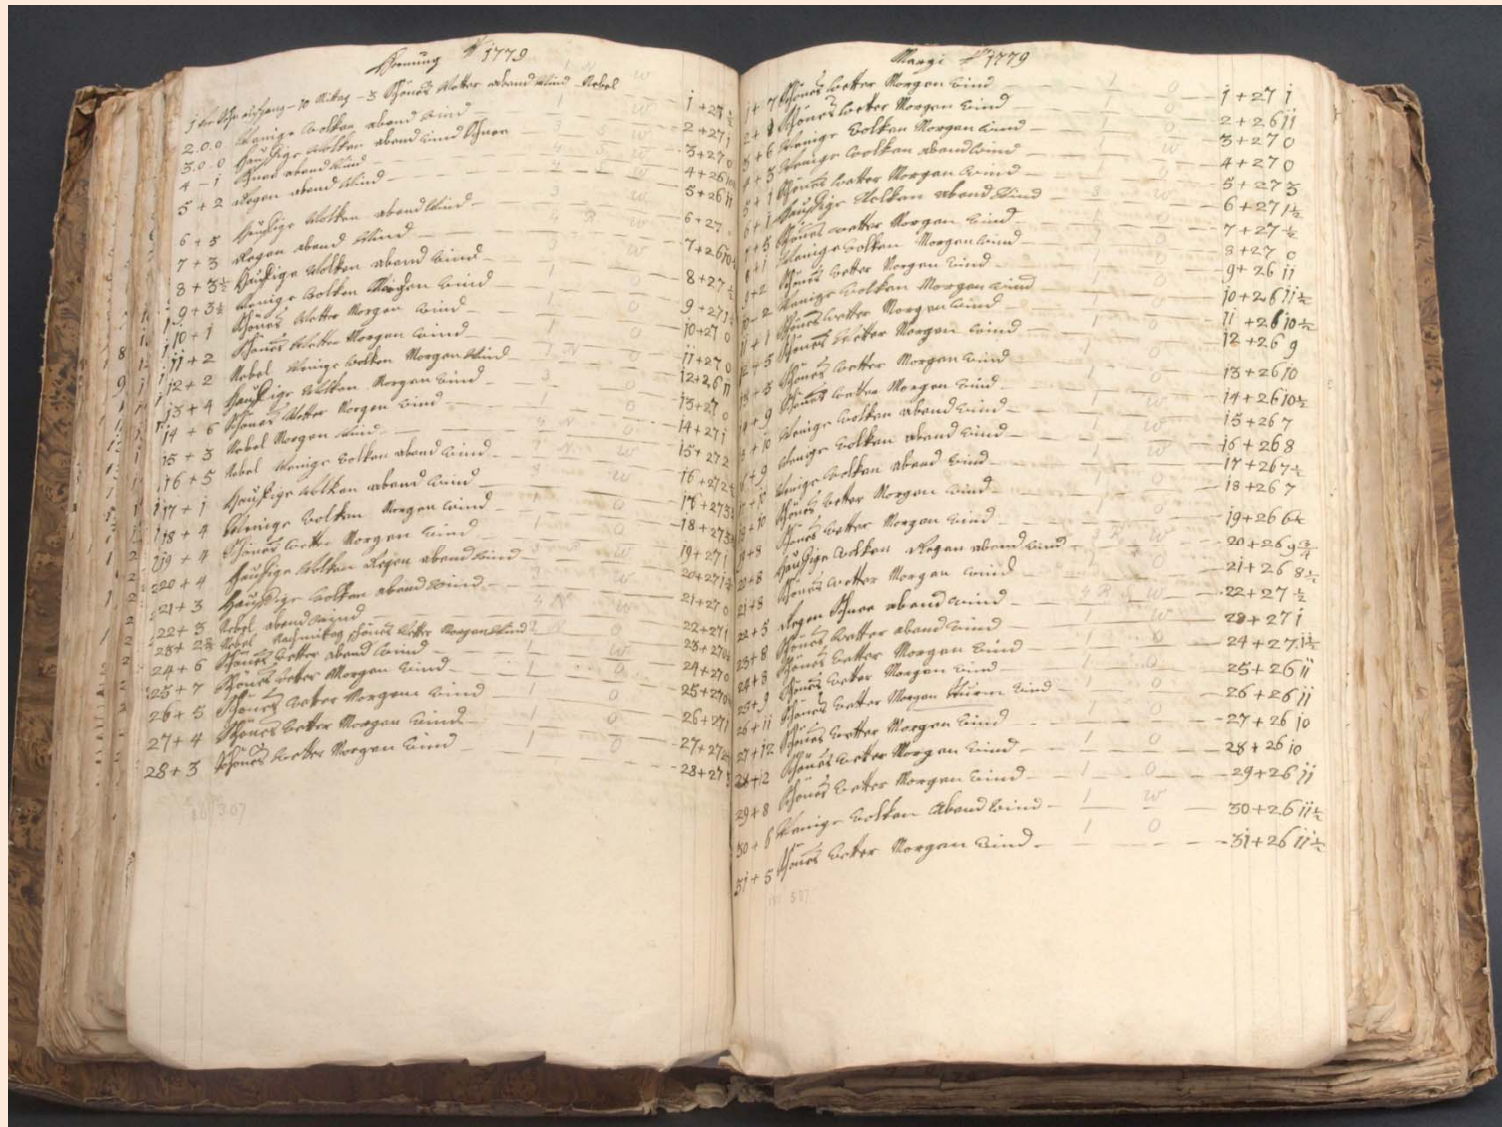 Hornung 1779
1 vor Son aufgang - 10 Mitag - 3 Schönes Wetter abend Wind Nebel 1 N W 1 + 27 ½
2 0 0 Wenige Wolken abend Wind 1 W 2 + 27 1
3 0 0 Häuffige Wolken abend Wind Schnee 3 S W 3 + 27 0
4 - 1 Schnee abend Wind 4 S W 4 + 26 10
5 + 2 Regen abend Wind 4 W 5 + 26 11
6 + 5 Häuffige Wolken abend Wind 3 W 6 + 27
7 + 3 Regen abend Wind 4 R W 7 + 26 10
8 + 3½ Häuffige Wolken abend Wind 3 W 8 + 27 ½
9 + 3½ Wenige Wolken Morgen Wind 1 0 9 + 27 1
10 + 1 Schönes Wetter Morgen Wind 1 0 10 + 27 0
11 + 2 Schönes Wetter Morgen Wind 1 0 11 + 27 0
12 + 2 Nebel Wenige Wolken Morgen Wind 1 N 0 12 + 26 11
13 + 4 Häuffige Wolken Morgen Wind 3 0 13 + 27 0
14 + 6 Schönes Wetter Morgen Wind 1 0 14 + 27 1
15 + 3 Nebel Morgen Wind 4 N 0 15 + 27 2
16 + 5 Nebel Wenige Wolken abend Wind 1 N W 16 + 27 2
17 + 1 Häuffige Wolken abend Wind 3 W 17 + 27 3
18 + 4 Wenige Wolken Morgen Wind 1 0 18 + 27 3
19 + 4 Schönes Wetter Morgen Wind 1 0 19 + 27 1
20 + 4 Häuffige Wolken Regen abend Wind 3 R W 20 + 27 1½
21 + 3 Häuffige Wolken abend Wind 3 W 21 + 27 0
22 + 3 Nebel abend Wind 4 N W 22 + 27 1
23 + 2½ Nebel Nachmitag schönes Wetter Morgen Wind 2 N 0 23 + 27 0
24 + 6 Schönes Wetter abend Wind 1 W 24 + 27 0
25 + 7 Schönes Wetter Morgen Wind 1 0 25 + 27 0
26 + 5 Schönes Wetter Morgen Wind 1 0 26 + 27 1
27 + 4 Schönes Wetter Morgen Wind 1 0 27 + 27 2
28 + 3 Schönes Wetter Morgen Wind 1 0 28 + 27
Marzi 1779
1 + 7 Schönes Wetter Morgen Wind 1 0 1 + 27 1
2 + Schönes Wetter Morgen Wind 1 0 2 + 26 11
3 + 6 Wenige Wolken Morgen Wind 1 0 3 + 27 0
4 + 3 Wenige Wolken abend Wind 1 W 4 + 27 0
5 + 1 Schönes Wetter Morgen Wind 1 0 5 + 27 3
6 + 1 Häuffige Wolken abend Wind 3 W 6 + 27 1½
7 + 5 Schönes Wetter Morgen Wind 1 0 7 + 27 ½
8 + 1 Wenige Wolken Morgen Wind 1 0 8 + 27 0
9 + 2 Schönes Wetter Morgen Wind 1 0 9 + 26 11
10 - 2 Wenige Wolken Morgen Wind 1 0 10 + 26 11½
11 + 1 Schönes Wetter Morgen Wind 1 0 11 + 26 10½
12 + 5 Schönes Wetter Morgen Wind 1 0 12 + 26 9
13 + 3 Schönes Wetter Morgen Wind 1 0 13 + 26 10
14 + 9 Schönes Wetter Morgen Wind 1 0 14 + 26 10½
15 + 10 Wenige Wolken abend Wind 1 W 15 + 26 7
16 + 9 Wenige Wolken abend Wind 1 W 16 + 26 8
Wenige Wolken abend Wind 1 W 17 + 26 7½
+ 10 Schönes Wetter Morgen Wind 1 0 18 + 26 7
19 + 8 Schönes Wetter Morgen Wind 1 0 19 + 26 6½
20 + 8 Häuffige Wolken Regen abend Wind 3 R W 20 + 26 9¾
21 + 8 Schönes Wetter Morgen Wind 1 0 21 + 26 8½
22 + 5 Regen Schnee abend Wind 4 R W 22 + 27 ½
23 + 8 Schönes Wetter abend Wind 1 W 23 + 27 1
24 + 8 Schönes Wetter Morgen Wind 1 0 24 + 27 1½
25 + 9 Schönes Wetter Morgen Wind 1 0 25 + 26 11
26 + 11 Schönes Wetter Morgen Sturm Wind 1 0 26 + 26 11
27 + 12 Schönes Wetter Morgen Wind 1 0 27 + 26 10
28 + 12 Schönes Wetter Morgen Wind 1 0 28 + 26 10
29 + 8 Schönes Wetter Morgen Wind 1 0 29 + 26 11
30 + 8 Wenige Wolken Abend Wind 1 W 30 + 26 11½
31 + 5 Schönes Wetter Morgen Wind 1 0 31 + 26 11½